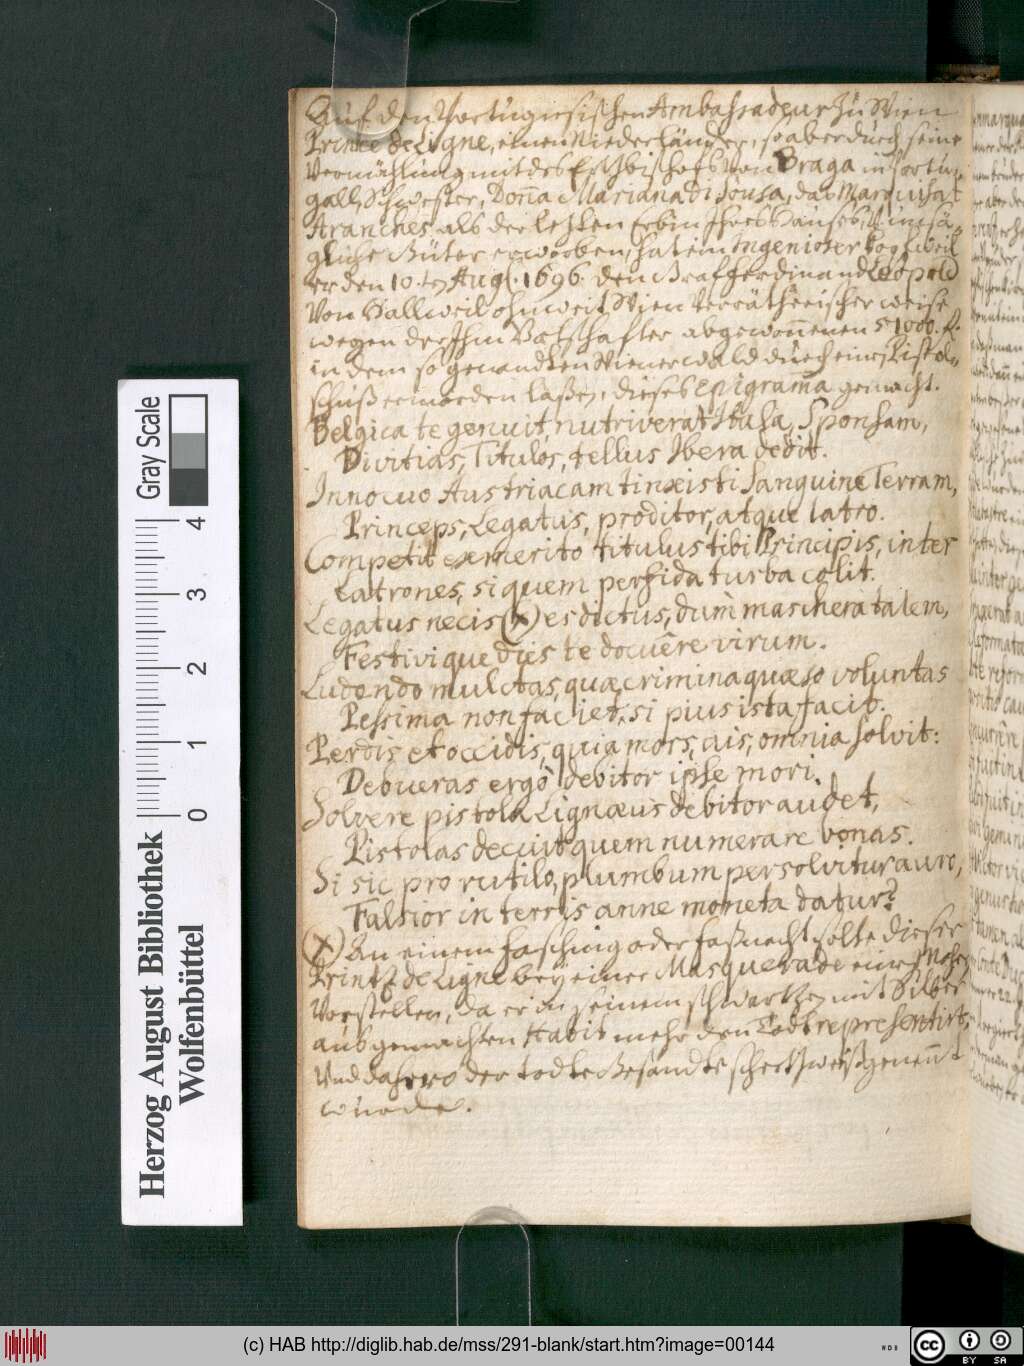 Auf den Portugiesischen Ambassadeur zu Wien
Prince de Ligne, einen Niederländer, so aber durch seine
Vermählung mit des Ertzbischofs von Braga in Portu-
gall, Schwester, Donna Mariana di Sousa, das Marquisat
Aranches als der letzten Erbin Ihres Hauses, Und sä-
gliche Güter erworben, hat ein Ingenioser Kopf weil
er den 10. ten Aug. 1696. den Graff Ferdinand Leopold
Von Hallweil ohnweit Wien Verrätherischer weise
wegen der Ihm Bothschafter abgewonnenen 51000. f.
in dem so genandten Wienerwald durch einen Pistol-
schuß ermorden laßen, dieses Epigram̃a gemacht.
Belgica te genuit, nutriverat Itala, Sponsam,
Divitias, Titulos, tellus Ibera dedit.
Innocuo Austriacam tinxisti Sanguine Terram,
Princeps, Legatus, proditor, atque latro.
Competit ex merito titulus tibi Principis, inter
Latrones, si quem perfida turba colit.
Legatus necis (x) es dictus, dum maschera talem,
Festivique dies te docuêre virum.
Ludendo mulctas, quæ crimina quæso voluntas
Pessima non faciet, si pius ista facit.
Perdis et occidis, quia mors, ais, omnia solvit:
Debueras ergò debitor ipse mori.
Solvere pistolâ Lignæus debitor audet,
Pistolas decuit quem numerare bonas.
Si sic pro rutilo, plumbum persolvitur auro,
Falsior in terris anne moneta datur?
(x) An einem fasching oder faßnacht solte dieser
Printz de Ligne bey einer Masquerade einen Mohren
Vorstellen, da er in seinem schwartzen mit Silber
ausgemachten Habit mehr den Todt repræsentirt,
Und dahero der todte Gesandte schertzweiß genennt
wurde.
Gray Scale
0 1 2 3 4
Herzog August Bibliothek
Wolfenbüttel
(c) HAB http://diglib.hab.de/mss/291-blank/start.htm?image=00144
WDB
cc BY SA